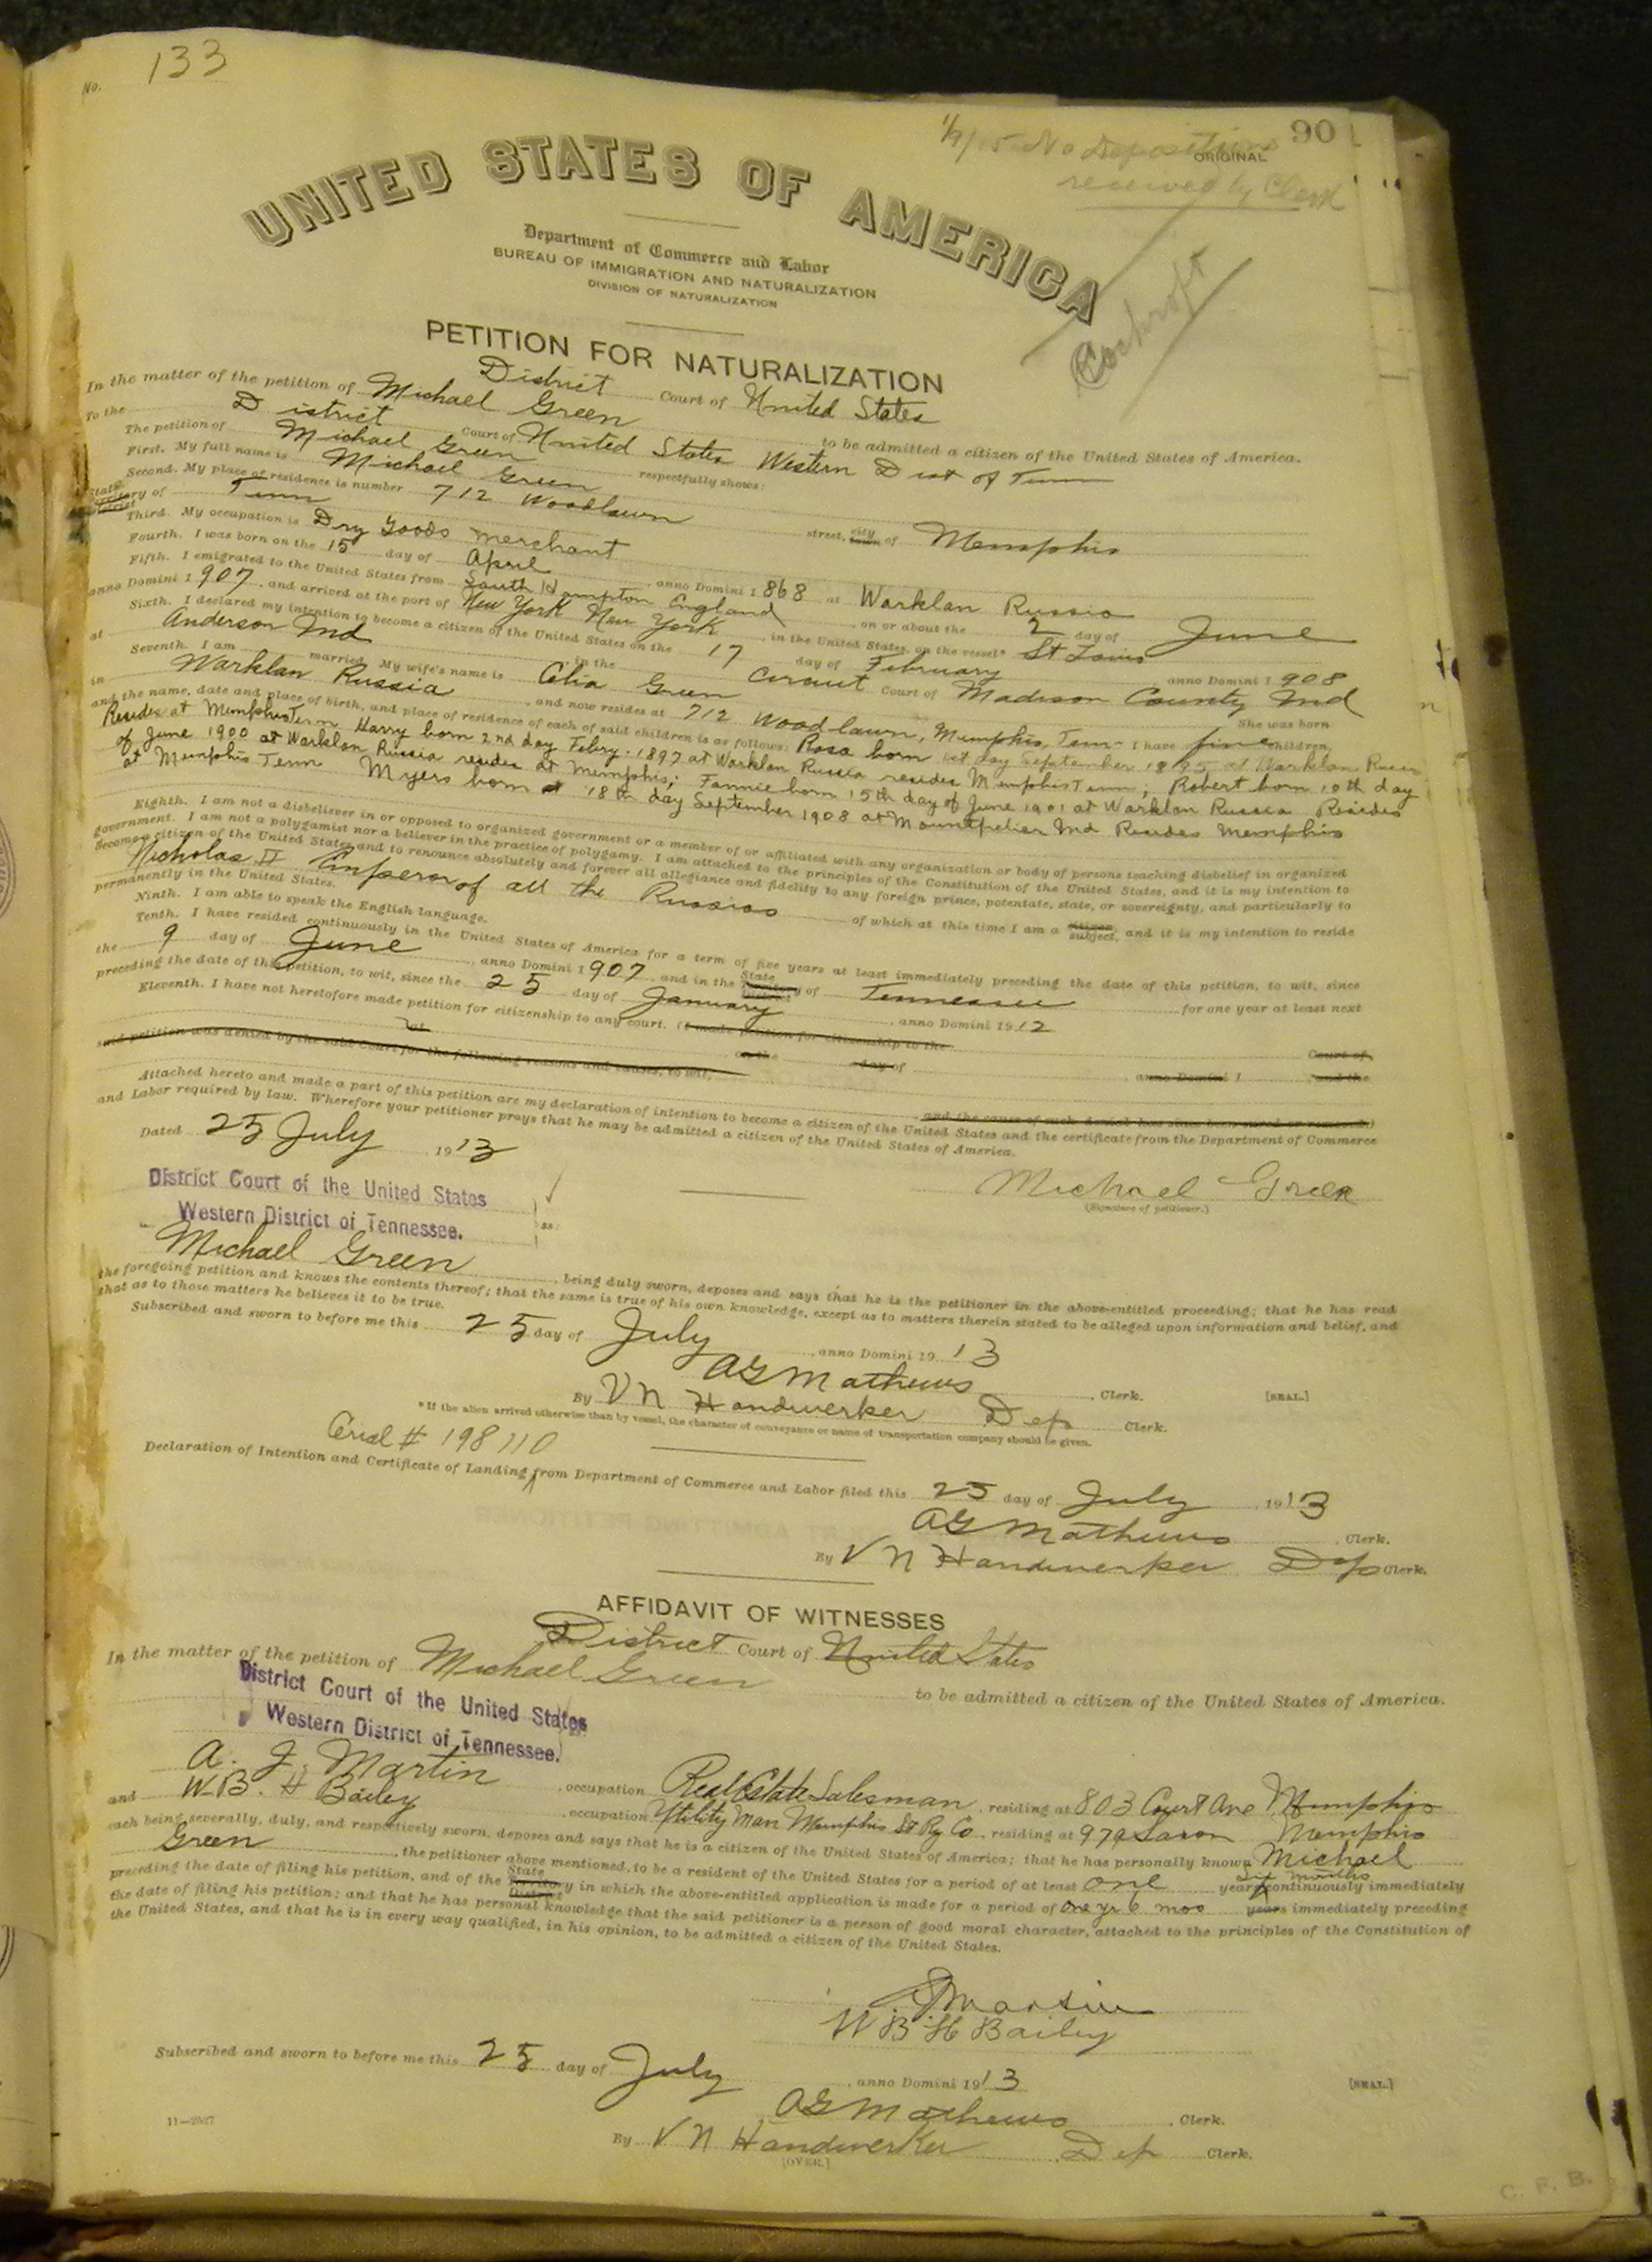 No. 133
1/9/15 No Depositions 90
ORIGINAL
received by Clerk
UNITED STATES OF AMERICA
Department of Commerce and Labor
BUREAU OF IMMIGRATION AND NATURALIZATION
DIVISION OF NATURALIZATION
Cochroft
PETITION FOR NATURALIZATION
District Court of United States
In the matter of the petition of Michael Green to be admitted a citizen of the United States of America.
To the District Court of United States Western Dist of Tenn
The petition of Michael Green respectfully shows:
First. My full name is Michael Green
Second. My place of residence is number 712 Woodlawn street, city town of Memphis
State Territory District of Tenn
Third. My occupation is Dry Goods merchant
Fourth. I was born on the 15 day of April, anno Domini 1868 at Warklan Russia
Fifth. I emigrated to the United States from South Hampton England, on or about the 2 day of June
anno Domini 1907, and arrived at the port of New York New York, in the United States, on the vessel* St Louis
Sixth. I declared my intention to become a citizen of the United States on the 17 day of February, anno Domini 1908
at Anderson Ind in the Circuit Court of Madison County Ind
Seventh. I am married. My wife's name is Celia Green She was born
in Warklan Russia, and now resides at 712 Woodlawn, Memphis, Tenn I have five children,
and the name, date and place of birth, and place of residence of each of said children is as follows: Rosa born 1st day September 1895 at Warklan Russia
Resides at Memphis Tenn Harry born 2nd day Febry. 1897 at Warklan Russia resides Memphis Tenn; Robert born 10th day
of June 1900 at Warklan Russia resides at Memphis; Fannie born 15th day of June 1901 at Warklan Russia Resides
at Memphis Tenn Myers born 18th day September 1908 at Mountpelier Ind Resides Memphis
Eighth. I am not a disbeliever in or opposed to organized government or a member of or affiliated with any organization or body of persons teaching disbelief in organized
government. I am not a polygamist nor a believer in the practice of polygamy. I am attached to the principles of the Constitution of the United States, and it is my intention to
become a citizen of the United States and to renounce absolutely and forever all allegiance and fidelity to any foreign prince, potentate, state, or sovereignty, and particularly to
Nicholas II Emperor of all the Russias of which at this time I am a citizen subject, and it is my intention to reside
permanently in the United States.
Ninth. I am able to speak the English language.
Tenth. I have resided continuously in the United States of America for a term of five years at least immediately preceding the date of this petition, to wit, since
the 9 day of June, anno Domini 1907 and in the State Territory District of Tennessee for one year at least next
preceding the date of this petition, to wit, since the 25 day of January, anno Domini 1912
Eleventh. I have not heretofore made petition for citizenship to any court. (I made petition for citizenship to the Court of
at on the day of, anno Domini 1, and the
said petition was denied by the said Court for the following reasons and causes, to wit,
and the cause of such denial has since been cured or removed.)
Attached hereto and made a part of this petition are my declaration of intention to become a citizen of the United States and the certificate from the Department of Commerce
and Labor required by law. Wherefore your petitioner prays that he may be admitted a citizen of the United States of America.
Dated 25 July 1913
Michael Green
(Signature of petitioner.)
District Court of the United States
Western District of Tennessee. ss:
Michael Green, being duly sworn, deposes and says that he is the petitioner in the above-entitled proceeding; that he has read
the foregoing petition and knows the contents thereof; that the same is true of his own knowledge, except as to matters therein stated to be alleged upon information and belief, and
that as to those matters he believes it to be true.
Subscribed and sworn to before me this 25 day of July, anno Domini 1913
AG Mathews, Clerk. [SEAL.]
By VN Handwerker Dep Clerk.
*If the alien arrived otherwise than by vessel, the character of conveyance or name of transportation company should be given.
Cerial # 198110
Declaration of Intention and Certificate of Landing from Department of Commerce and Labor filed this 25 day of July 1913
AG Mathews, Clerk.
By VN Handwerker Dep Clerk.
AFFIDAVIT OF WITNESSES
District Court of United States
In the matter of the petition of Michael Green to be admitted a citizen of the United States of America.
District Court of the United States
Western District of Tennessee. ss:
A. J. Martin, occupation Real Estate Salesman, residing at 803 Court Ave Memphis
and W.B. H Bailey, occupation Utility Man Memphis St Ry Co, residing at 979 Saxon Memphis
each being severally, duly, and respectively sworn, deposes and says that he is a citizen of the United States of America; that he has personally known Michael
Green, the petitioner above mentioned, to be a resident of the United States for a period of at least one years six months continuously immediately
preceding the date of filing his petition, and of the State Territory District in which the above-entitled application is made for a period of one yr 6 mos years immediately preceding
the date of filing his petition; and that he has personal knowledge that the said petitioner is a person of good moral character, attached to the principles of the Constitution of
the United States, and that he is in every way qualified, in his opinion, to be admitted a citizen of the United States.
AJ Martin
W B H Bailey
Subscribed and sworn to before me this 25 day of July, anno Domini 1913 [SEAL.]
AG Mathews, Clerk.
11—2527
By VN Handwerker, Dep Clerk.
(OVER.)
C. F. B.